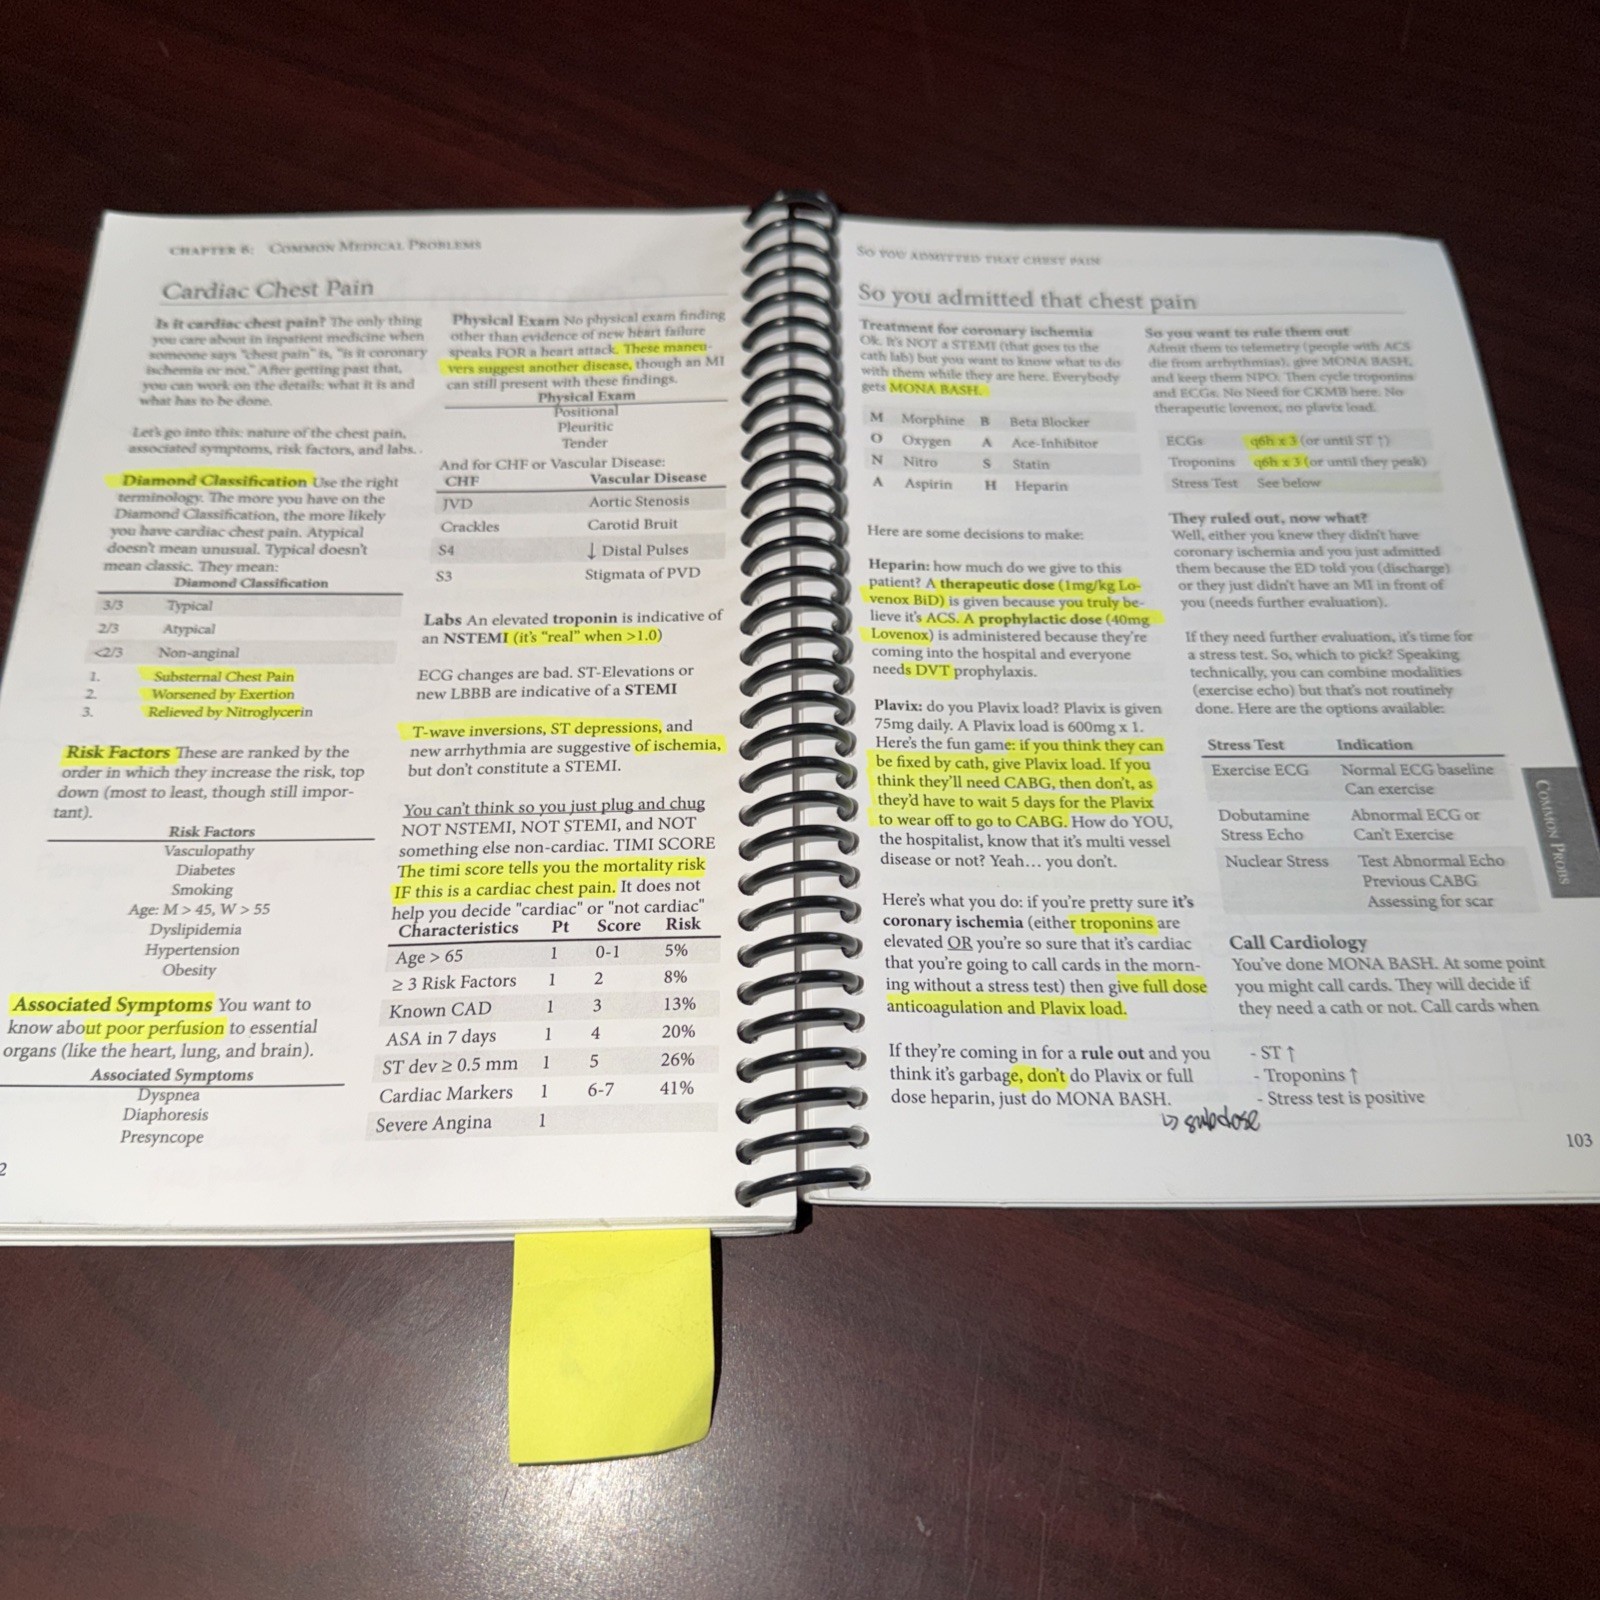 CHAPTER 6: COMMON MEDICAL PROBLEMS
Cardiac Chest Pain
Is it cardiac chest pain? The only thing
you care about in inpatient medicine when
someone says "chest pain" is, "is it coronary
ischemia or not." After getting past that,
you can work on the details: what it is and
what has to be done.
Let's go into this: nature of the chest pain,
associated symptoms, risk factors, and labs. .
Diamond Classification Use the right
terminology. The more you have on the
Diamond Classification, the more likely
you have cardiac chest pain. Atypical
doesn't mean unusual. Typical doesn't
mean classic. They mean:
Diamond Classification
3/3 Typical
2/3 Atypical
<2/3 Non-anginal
1. Substernal Chest Pain
2. Worsened by Exertion
3. Relieved by Nitroglycerin
Risk Factors These are ranked by the
order in which they increase the risk, top
down (most to least, though still impor-
tant).
Risk Factors
Vasculopathy
Diabetes
Smoking
Age: M > 45, W > 55
Dyslipidemia
Hypertension
Obesity
Associated Symptoms You want to
know about poor perfusion to essential
organs (like the heart, lung, and brain).
Associated Symptoms
Dyspnea
Diaphoresis
Presyncope
2
Physical Exam No physical exam finding
other than evidence of new heart failure
speaks FOR a heart attack. These maneu-
vers suggest another disease, though an MI
can still present with these findings.
Physical Exam
Positional
Pleuritic
Tender
And for CHF or Vascular Disease:
CHF Vascular Disease
JVD Aortic Stenosis
Crackles Carotid Bruit
S4 ↓ Distal Pulses
S3 Stigmata of PVD
Labs An elevated troponin is indicative of
an NSTEMI (it's "real" when >1.0)
ECG changes are bad. ST-Elevations or
new LBBB are indicative of a STEMI
T-wave inversions, ST depressions, and
new arrhythmia are suggestive of ischemia,
but don't constitute a STEMI.
You can't think so you just plug and chug
NOT NSTEMI, NOT STEMI, and NOT
something else non-cardiac. TIMI SCORE
The timi score tells you the mortality risk
IF this is a cardiac chest pain. It does not
help you decide "cardiac" or "not cardiac"
Characteristics Pt Score Risk
Age > 65 1 0-1 5%
≥ 3 Risk Factors 1 2 8%
Known CAD 1 3 13%
ASA in 7 days 1 4 20%
ST dev ≥ 0.5 mm 1 5 26%
Cardiac Markers 1 6-7 41%
Severe Angina 1
SO YOU ADMITTED THAT CHEST PAIN
So you admitted that chest pain
Treatment for coronary ischemia
Ok. It's NOT a STEMI (that goes to the
cath lab) but you want to know what to do
with them while they are here. Everybody
gets MONA BASH.
M Morphine B Beta Blocker
O Oxygen A Ace-Inhibitor
N Nitro S Statin
A Aspirin H Heparin
Here are some decisions to make:
Heparin: how much do we give to this
patient? A therapeutic dose (1mg/kg Lo-
venox BiD) is given because you truly be-
lieve it's ACS. A prophylactic dose (40mg
Lovenox) is administered because they're
coming into the hospital and everyone
needs DVT prophylaxis.
Plavix: do you Plavix load? Plavix is given
75mg daily. A Plavix load is 600mg x 1.
Here's the fun game: if you think they can
be fixed by cath, give Plavix load. If you
think they'll need CABG, then don't, as
they'd have to wait 5 days for the Plavix
to wear off to go to CABG. How do YOU,
the hospitalist, know that it's multi vessel
disease or not? Yeah... you don't.
Here's what you do: if you're pretty sure it's
coronary ischemia (either troponins are
elevated OR you're so sure that it's cardiac
that you're going to call cards in the morn-
ing without a stress test) then give full dose
anticoagulation and Plavix load.
If they're coming in for a rule out and you
think it's garbage, don't do Plavix or full
dose heparin, just do MONA BASH.
↳ subdose
So you want to rule them out
Admit them to telemetry (people with ACS
die from arrhythmias), give MONA BASH,
and keep them NPO. Then cycle troponins
and ECGs. No Need for CKMB here. No
therapeutic lovenox, no plavix load.
ECGs q6h x 3 (or until ST ↑)
Troponins q6h x 3 (or until they peak)
Stress Test See below
They ruled out, now what?
Well, either you knew they didn't have
coronary ischemia and you just admitted
them because the ED told you (discharge)
or they just didn't have an MI in front of
you (needs further evaluation).
If they need further evaluation, it's time for
a stress test. So, which to pick? Speaking
technically, you can combine modalities
(exercise echo) but that's not routinely
done. Here are the options available:
Stress Test Indication
Exercise ECG Normal ECG baseline
Can exercise
Dobutamine Abnormal ECG or
Stress Echo Can't Exercise
Nuclear Stress Test Abnormal Echo
Previous CABG
Assessing for scar
Call Cardiology
You've done MONA BASH. At some point
you might call cards. They will decide if
they need a cath or not. Call cards when
- ST ↑
- Troponins ↑
- Stress test is positive
COMMON PROBS
103